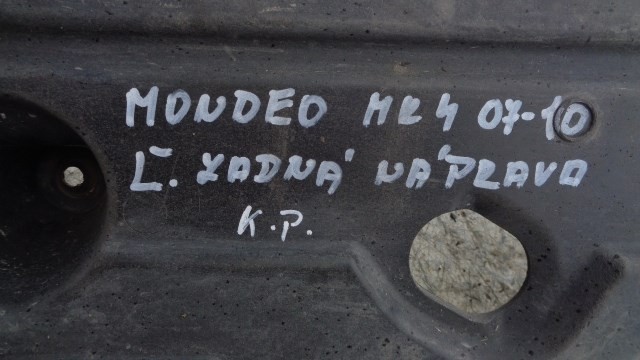 MONDEO MK4 07-10
Ľ. ZADNÁ NÁPRAVA
K.P.